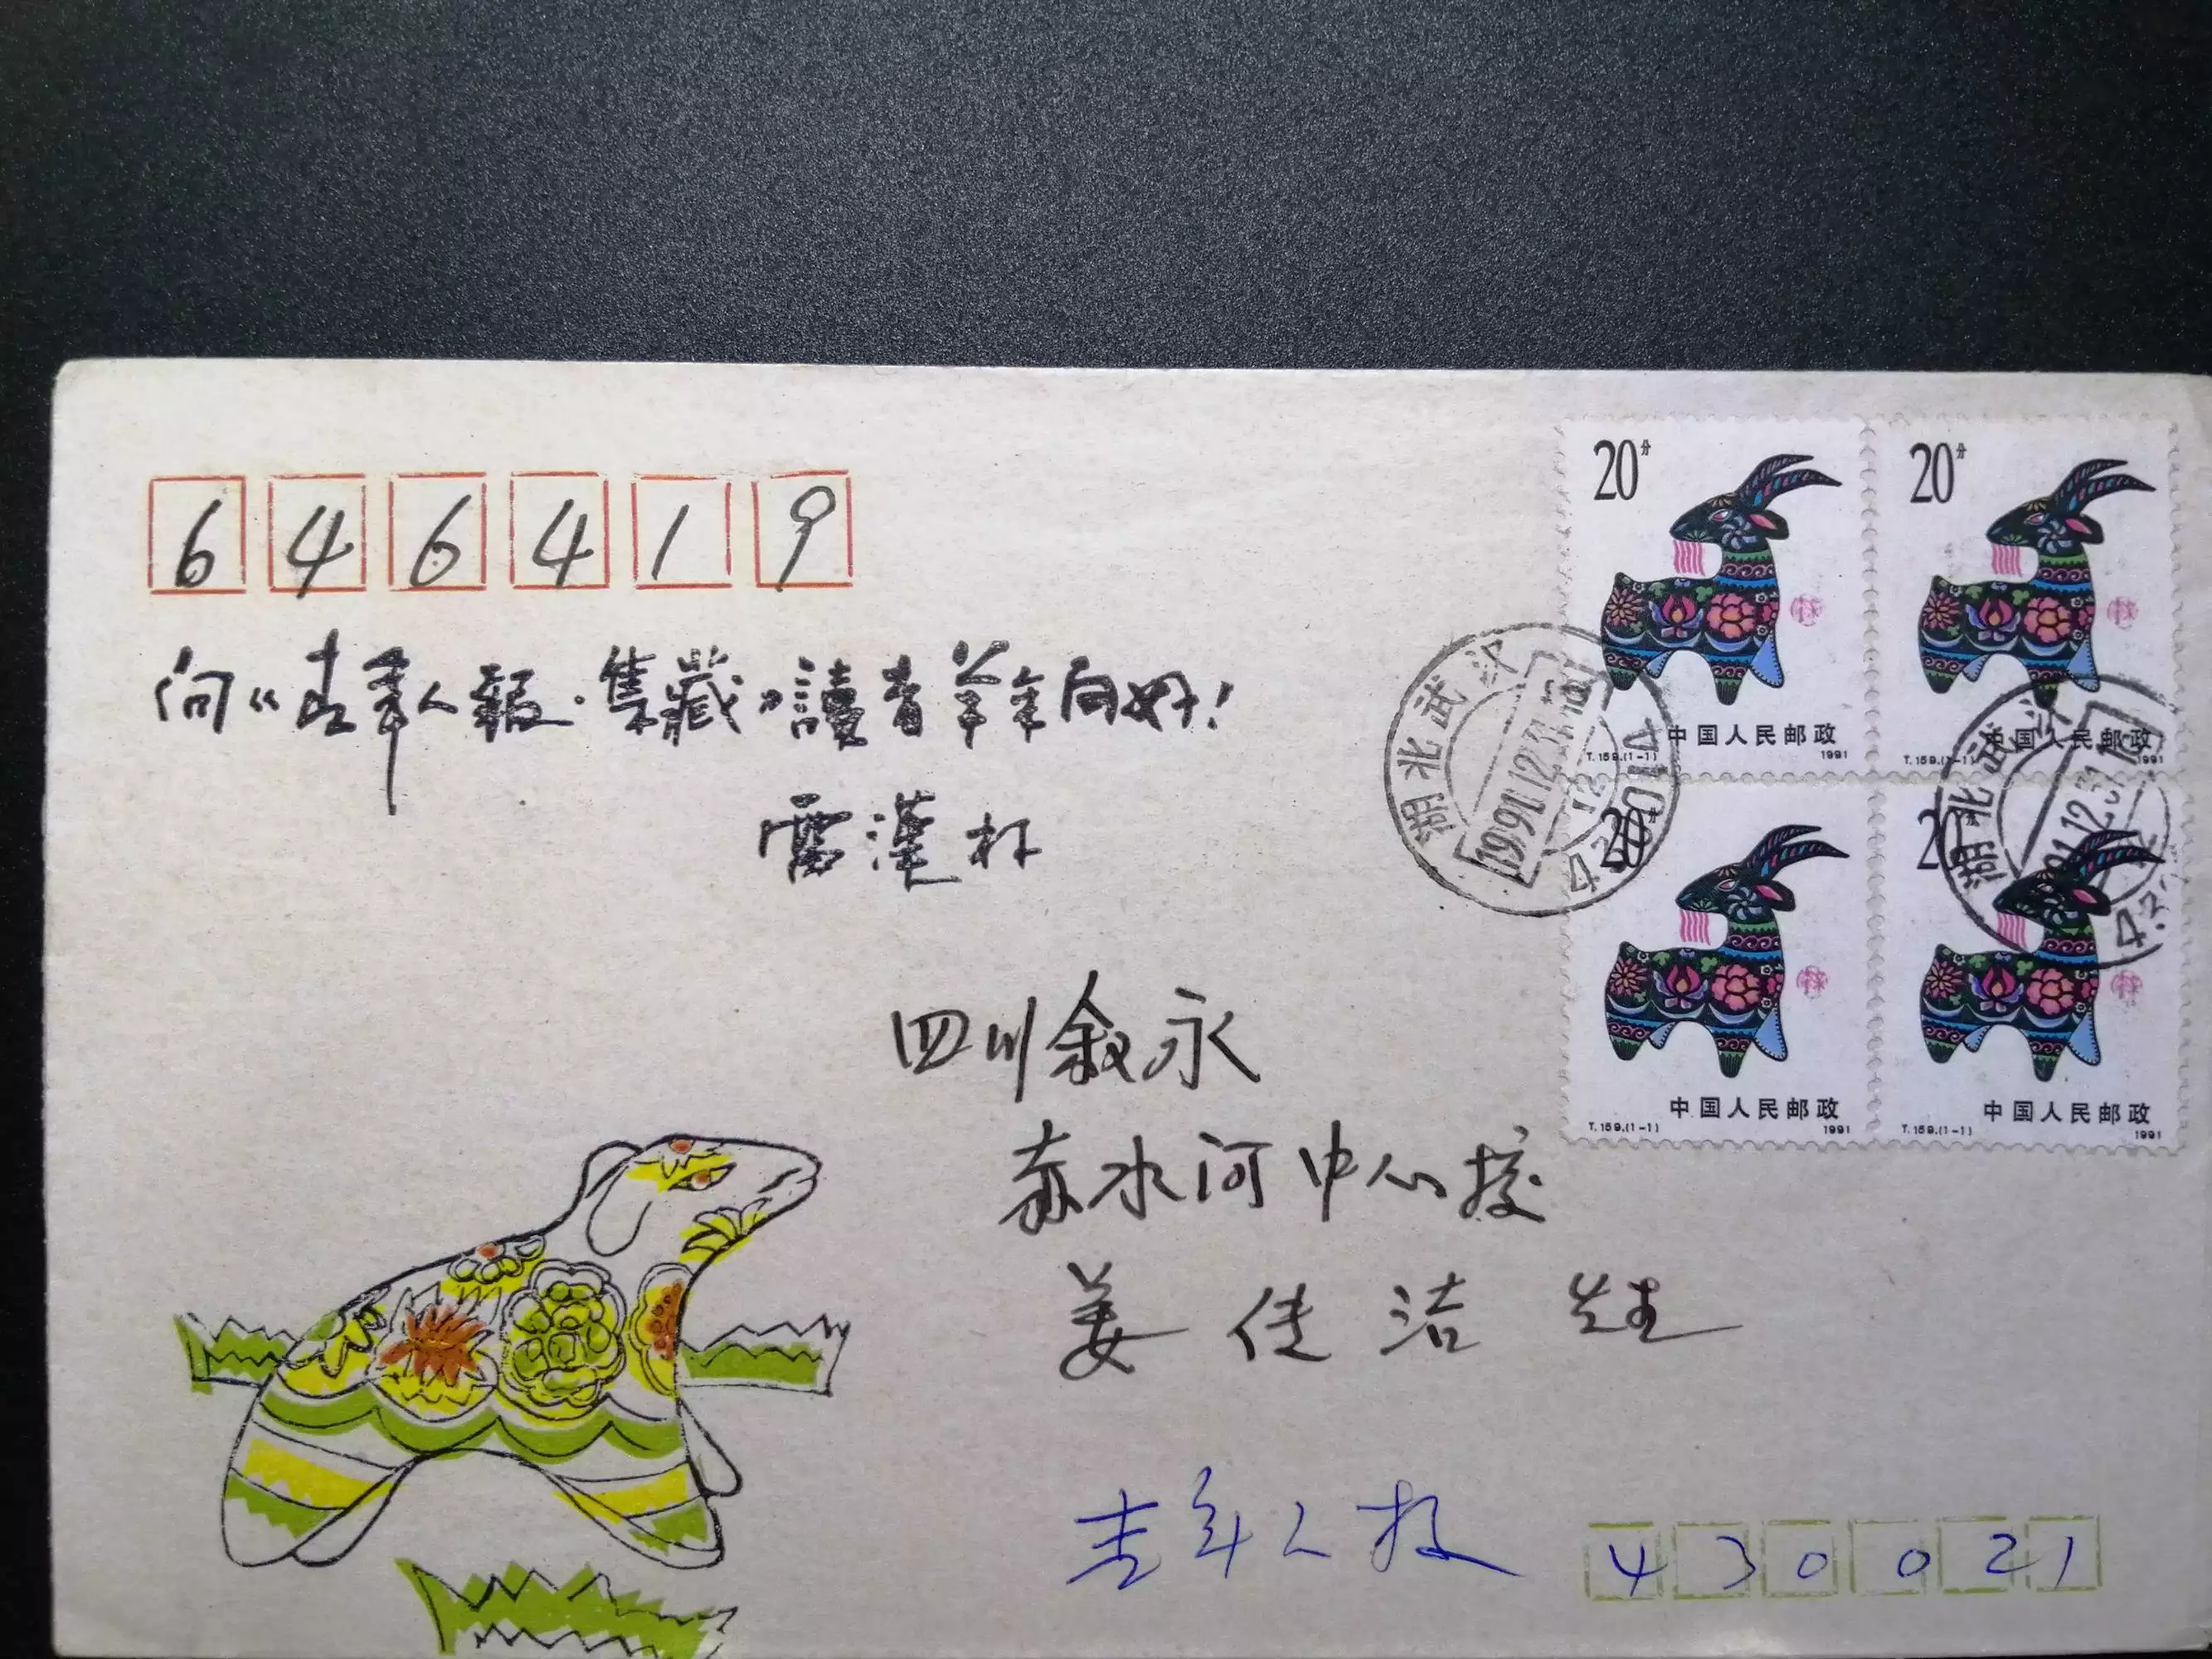 646419
向《老年人報·集藏》讀者羊年问好!
雷漢林
四川叙永
赤水河中心校
姜佳洁 先生
老年人报
430021
20分
中国人民邮政
T.159.(1-1) 1991
20分
中国人民邮政
T.159.(1-1) 1991
20分
中国人民邮政
T.159.(1-1) 1991
20分
中国人民邮政
T.159.(1-1) 1991
湖北武汉
1991.12.31
12
湖北武汉
1991.12.31